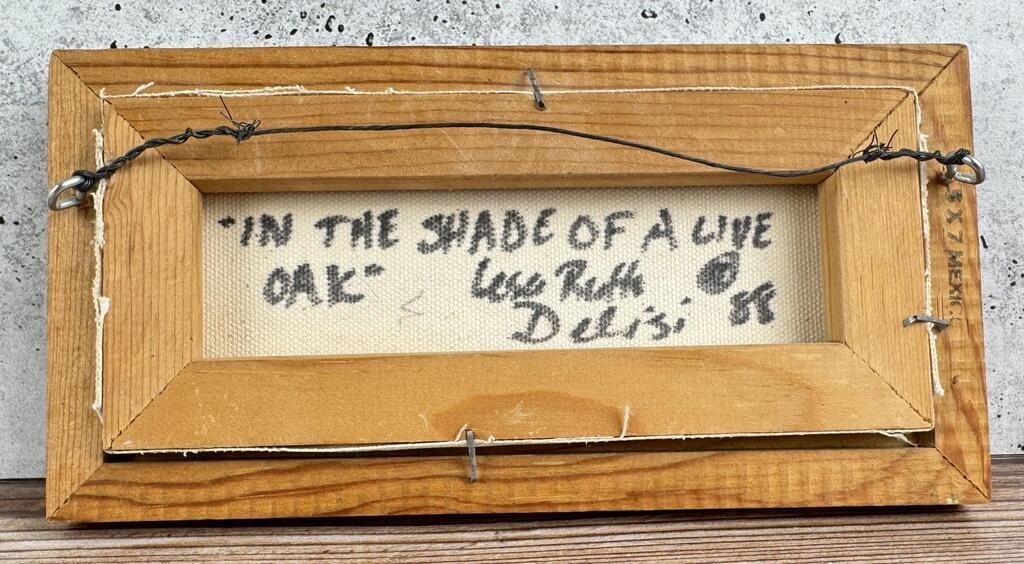 "IN THE SHADE OF A LIVE
OAK" Ruth ©
Delisi 88
X 7 MEXIC